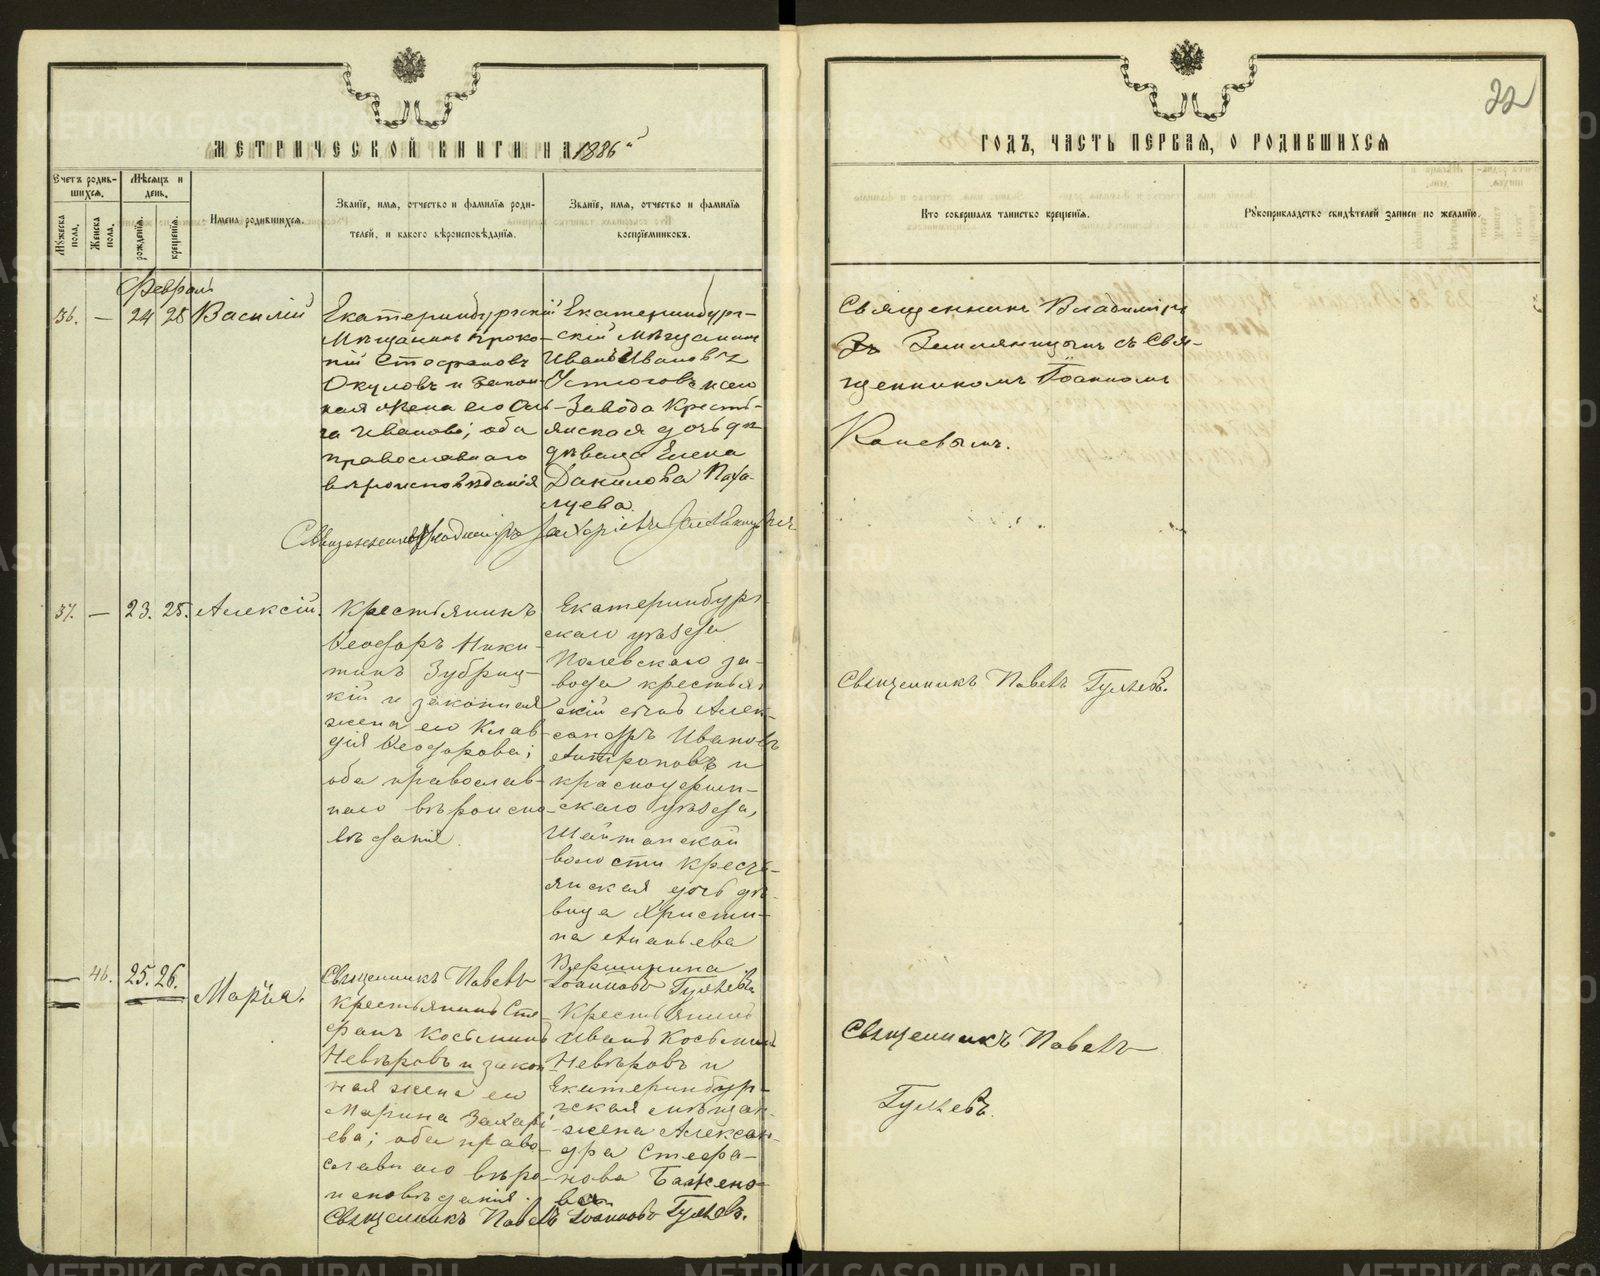 МЕТРИЧЕСКОЙ КНИГИ НА 1886й
ГОДЪ, ЧАСТЬ ПЕРВАЯ, О РОДИВШИХСЯ
22
Счетъ родив-
шихся.
Мѣсяцъ и
день.
Мужеска пола.
Женска пола.
рожденія.
крещенія.
Имена родившихся.
Званіе, имя, отчество и фамилія роди-
телей, и какого вѣроисповѣданія.
Званіе, имя, отчество и фамилія
воспріемниковъ.
Кто совершалъ таинство крещенія.
Рукоприкладство свидѣтелей записи по желанію.
Февраль
36. — 24 28 Василій
Екатеринбургскій
Мѣщанинъ Проко-
пій Стефановъ
Окуловъ и закон-
ная жена его Оль-
га Иванова; оба
православнаго
вѣроисповѣданія
Екатеринбург-
скій мѣщанинъ
Иванъ Ивановъ
Устюговъ и сего
Завода Крестья-
янская дочь дѣ-
вица Елена
Данилова Паха-
луева.
Священникъ Владиміръ
Земляницынъ съ Свя-
щенникомъ Іоанномъ
Коневымъ.
Священникъ Владиміръ
37. — 23. 25. Алексій.
Крестьянинъ
Ѳеодоръ Ники-
тинъ Зубриц-
кій и законная
жена его Клав-
дія Ѳеодорова;
оба православ-
наго вѣроиспо-
вѣданія.
Екатеринбург-
скаго уѣзда
Полевскаго за-
вода крестьян-
скій сынъ Алек-
сандръ Ивановъ
Антроповъ и
красноуфим-
скаго уѣзда,
Шайтанской
волости крестъ-
янская дочь дѣ-
вица Христи-
на Ананьева
Вершинина
Священникъ Павелъ Гуляевъ.
Священникъ Павелъ Іоанновъ Гуляевъ
— 46. 25. 26. Марія.
Крестьянинъ Сте-
фанъ Косьминъ
Невѣровъ и закон
ная жена его
Марина Захарі
ева; оба право-
славнаго вѣро-
исповѣданія.
Крестьянинъ
Иванъ Косьминъ
Невѣровъ и
Екатеринбур-
гская мѣщан.
жена Алексан-
дра Стефа-
нова Бажено-
ва
Священникъ Павелъ
Гуляевъ.
Священникъ Павелъ Іоанновъ Гуляевъ.
METRIKI.GASO-URAL.RU